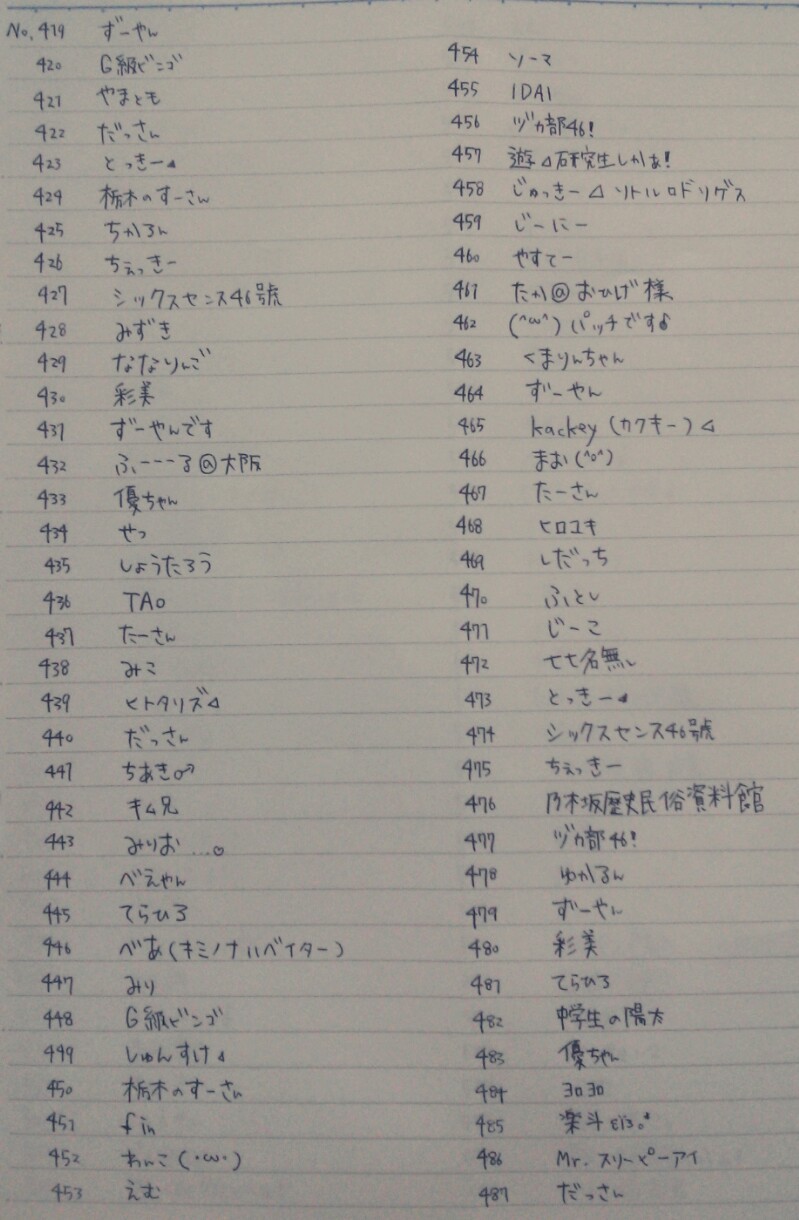 No. 419 ずーやん
420 G級ビンゴ
421 やまとも
422 だっさん
423 とっきー⊿
424 栃木のすーさん
425 ちかろん
426 ちぇっきー
427 シックスセンス46号虎
428 みずき
429 ななりんご
430 彩美
431 ずーやんです
432 ふーーーる@大阪
433 優ちゃん
434 せつ
435 しょうたろう
436 TAO
437 たーさん
438 みこ
439 ヒトタリズ⊿
440 だっさん
441 ちあき♂
442 キム兄
443 みりお...♡
444 べえやん
445 てらひろ
446 べあ(キミノナハベイター)
447 みり
448 G級ビンゴ
449 しゅんすけ⊿
450 栃木のすーさん
451 fin
452 わんこ(・ω・)
453 えむ
454 ソーマ
455 IDAI
456 ヅカ部46!
457 遊⊿研究生しかぁ!
458 じゅっきー⊿リトルロドリゲス
459 じーにー
460 やすてー
461 たか@おひげ様
462 (^ω^)パッチです♪
463 くまりんちゃん
464 ずーやん
465 kackey(カクキー)⊿
466 まお(^o^)
467 たーさん
468 ヒロユキ
469 しだっち
470 ふとし
471 じーこ
472 七七名無し
473 とっきー⊿
474 シックスセンス46号虎
475 ちぇっきー
476 乃木坂歴史民俗資料館
477 ヅカ部46!
478 ゆかるん
479 ずーやん
480 彩美
481 てらひろ
482 中学生の陽太
483 優ちゃん
484 ヨロヨロ
485 楽斗
486 Mr.スリーピーアイ
487 だっさん